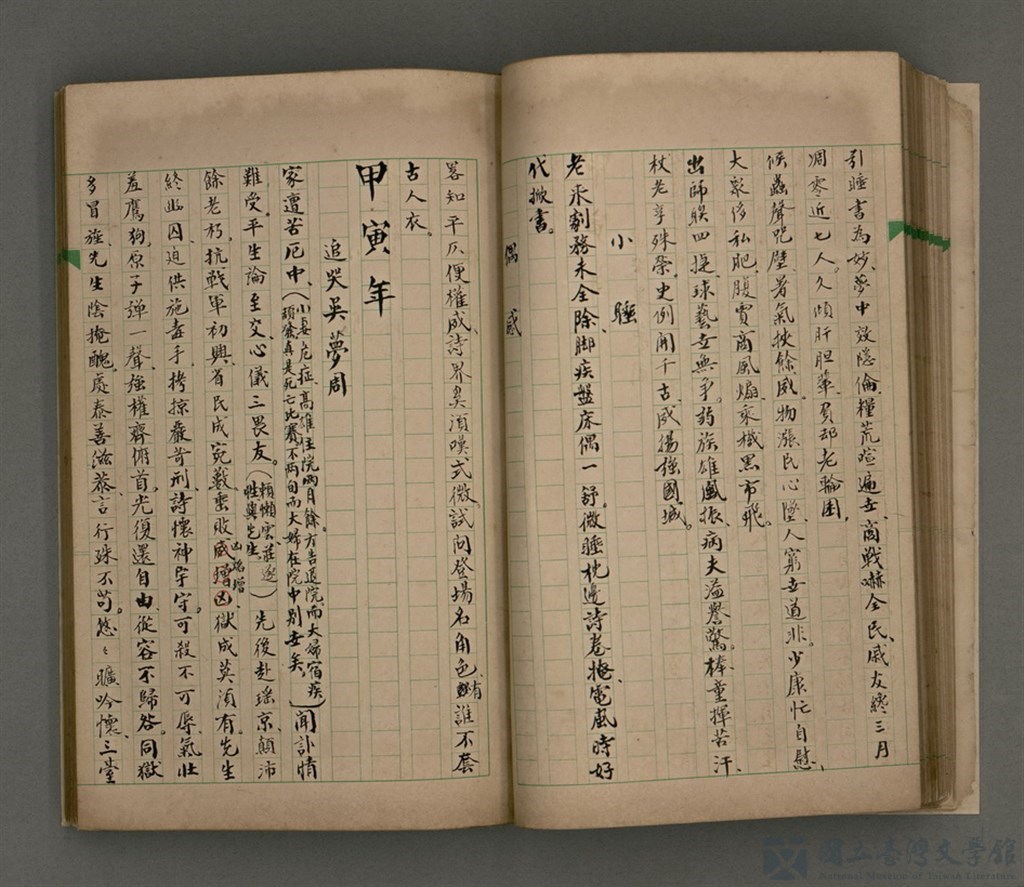 引睡書為妙、夢中效隱倫、糧荒喧遍世、商戰嚇全民、戚友終三月
凋零近七人、久傾肝胆輩、負却老輪囷、
候蟲聲咒壁、暑氣挾餘威、物漲民心墜、人窮世道非。少康忙自慰、
大眾侈私肥、腹賈商風煽、乘機黑市飛。
出師睽四捷、球藝世無爭。葯族雄風振、病夫溢譽驚。棒童揮苦汗、
杖老享殊榮。史例開千古、威揚強國城。
小睡
老來劇務未全除、脚疾盤床偶一舒。微睡枕邊詩卷掩、電風時好
代掀書。
偶感
畧知平仄便權威、詩界奚須嘆式微。試問登場名角色、有誰不套
古人衣。
甲寅年
追哭吳夢周
家遭苦厄中、(小妻危症、高雄住院兩月餘、方告退院、而大婦宿疾
頭發真是死亡比賽、不兩旬而大婦在院中別世矣、)聞訃情
難受。平生論至交、心儀三畏友。(賴懶雲、莊遂
性與先生)先後赴瑤京、顛沛
餘老朽。抗戰軍初興、省民成寃藪。蜇敗威增凶、獄成莫須有。先生
凶焰增
終幽囚、迫供施毒手、拷掠嚴苛刑、詩懷神字守。可殺不可辱、氣壯
羞鷹狗。原子彈一聲、強權齊俯首。光復還自由、從容不歸咎。同獄
多冒旌、先生陰掩醜。處泰善滋恭、言行殊不苟。悠々曠吟懷、三臺
國立臺灣文學館
National Museum of Taiwan Literature